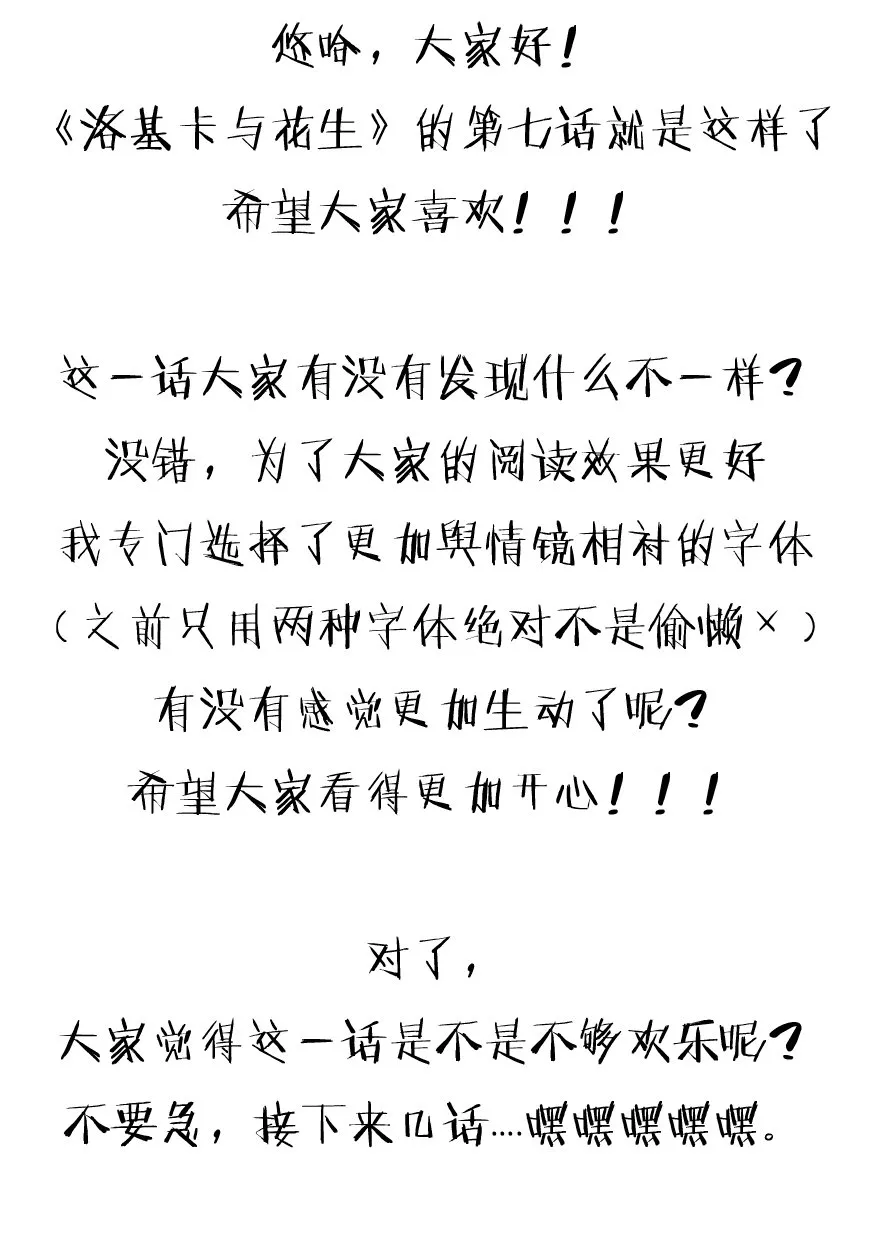 悠哈，大家好！
《洛基卡与花生》的第七话就是这样了
希望大家喜欢！！！
这一话大家有没有发现什么不一样？
没错，为了大家的阅读效果更好
我专门选择了更加舆情镜相衬的字体
（之前只用两种字体绝对不是偷懒×）
有没有感觉更加生动了呢？
希望大家看得更加开心！！！
对了，
大家觉得这一话是不是不够欢乐呢？
不要急，接下来几话....嘿嘿嘿嘿嘿。